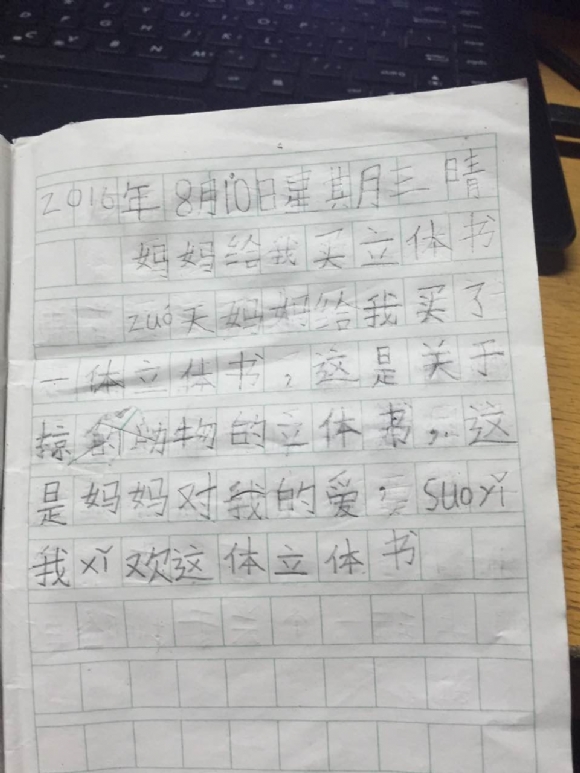 2016年8月10日星期月三晴
妈妈给我买立体书
zuó天妈妈给我买了
一体立体书，这是关于
掠动物的立体书，这
是妈妈对我的爱，suoyǐ
我xǐ欢这体立体书